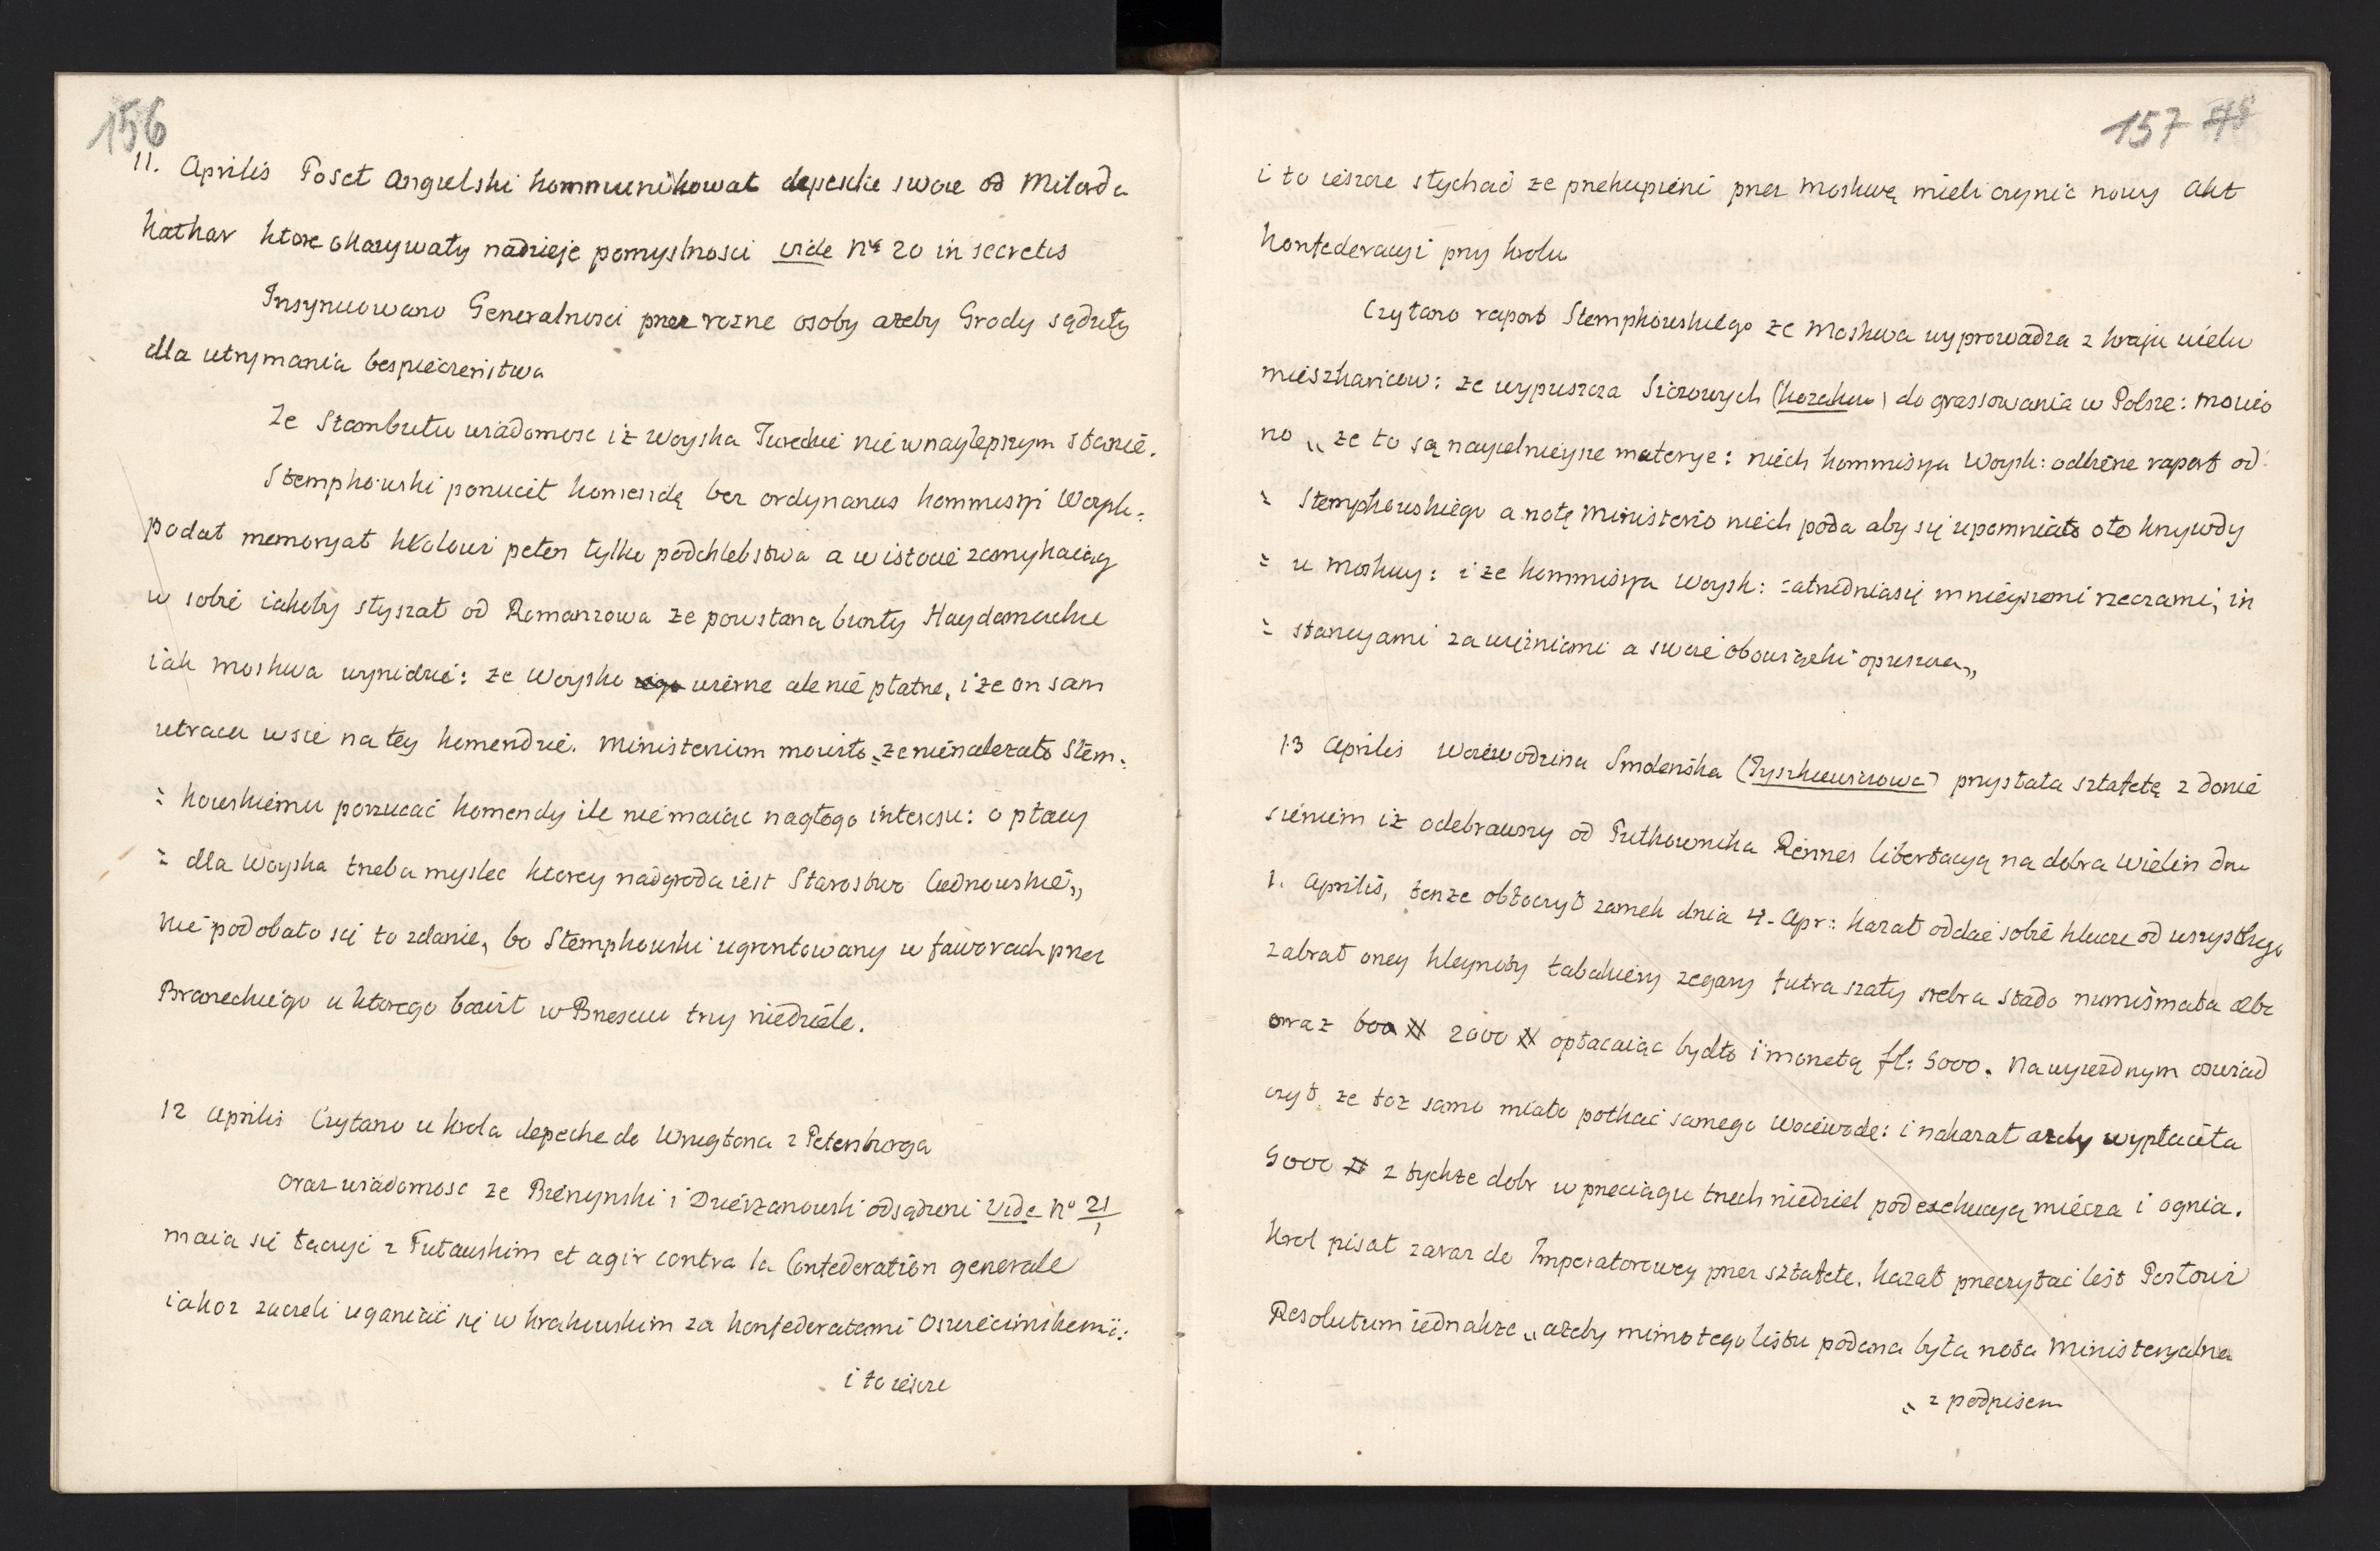 156
11. Aprilis Poseł Angielski kommunikował depesche swoie od Milorda
Kathar ktore okazywały nadzieje pomyslnosci vide N° 20 in secretis
Insynuowano Generalnosci przez rozne osoby ażeby Grody sądziły
dla utrzymania bespieczenstwa
Ze Stambułu wiadomosc iż woyska Tureckie nie w naylepszym stanie.
Stempkowski porzucił komendę bez ordynansu kommissyi Woysk:
podał memoryał krolowi pełen tylko podchlebstwa a w istocie zamykaiący
w sobie iakoby słyszał od Romanzowa ze powstana bunty Haydamackie
iak Moskwa wynidzie: ze Woysko wierne ale nie płatne, i że on sam
utracił wsie na tey komendzie. Ministerium mowiło „ze nienalezało Stem:
: kowskiemu porzucać komendy ile nie maiąc nagłego interesu: o płacy
: dla Woyska trzeba myslec ktorey nadgroda iest Starostwo Cudnowskie„
Nie podobało się to zdanie, bo Stempkowski ugrontowany w faworach przez
Braneckiego u ktorego bawił w Brzesciu trzy niedziele.
12 Aprilis Czytano u krola depeche do Wrugtona z Petersburga
oraz wiadomosc ze Bierzynski i Dzierzanowski odsądzeni vide N° 21/1
maia się łączyć z Fułauskim et agir contra la Confederation generale
iakoz zaczeli uganiać się w krakowskim za konfederatami Oswiecimskemi:
i to iescze
157
i to iescze słychać ze przekupieni przez Moskwę mieli czynic nowy Akt
Konfederacyi przy krolu
Czytano raport Stempkowskiego ze Moskwa wyprowadza z kraju wielu
mieszkancow: ze wypuszcza Siczowych (kozakow) do grassowania w Polsze: mowio
no „ze to są naycelnieysze materye: niech kommissya Woysk: odbierze raport od
: Stempkowskiego a notę Ministerio niech poda aby się upomniało o te krzywdy
: u Moskwy: i ze kommissya woysk: zatrudnia się mnieyszemi rzeczami, in
: stancyami za więzniami a swoie obowiązki opuszcza„
13 Aprilis Woiewodzina Smolenska (Tyszkiewiczowa) przysłała sztafetę z donie
sieniem iż odebrawszy od Pułkownika Rennes libertacyą na dobra Wielin dn
1. Aprilis, tenże obtoczył zamek dnia 4. Apr: kazał oddać sobie klucze od wszystkiego
zabrał oney kleynoty tabakiery zegary futra szaty srebra stado numismata albo
oraz 600 # 2000 # opłacaiąc bydło i monetą fl: 5000. Na wyiezdnym oswiad
czył ze toż samo miało potkać samego Woiewodę: i nakazał azeby wypłaciła
5000 # z tychże dobr w przeciągu trzech niedziel pod exekucyą miecza i ognia.
Krol pisał zaraz do Imperatorowey przez sztafetę. kazał przeczytać list Posłowi
Resolutum iednakże „ażeby mimo tego listu podana była nota Ministeryalna
„ z podpisem